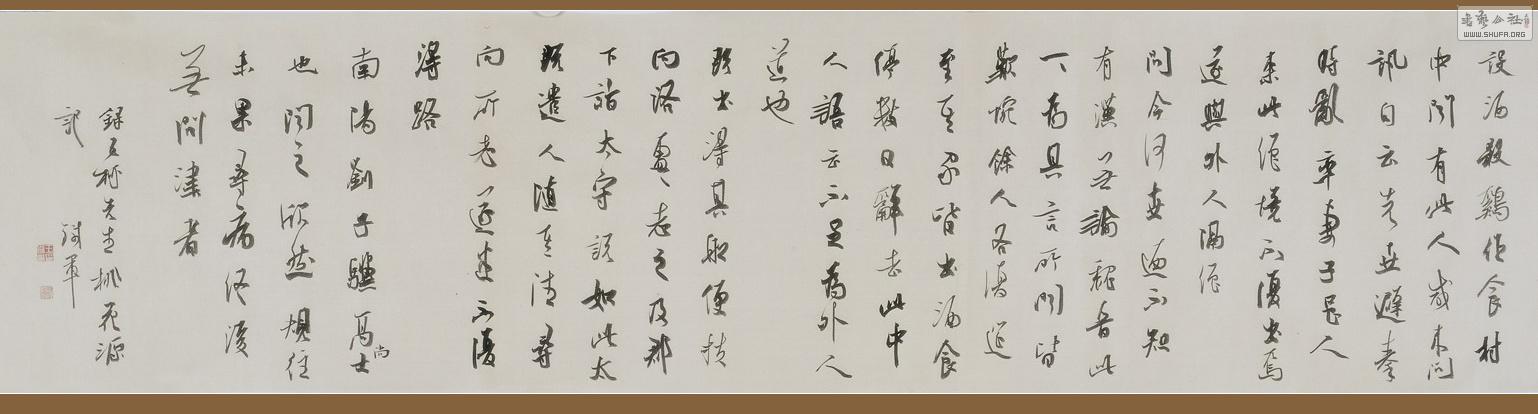 設酒殺鷄作食村
中聞有此人咸來問
訊自云先世避秦
時亂率妻子邑人
來此絕境不復出焉
遂與外人隔絕
問今何世迺不知
有漢無論魏晉此
一一為具言所聞皆
歎惋餘人各復延
至其家皆出酒食
停數日辭去此中
人語云不足為外人
道也
既出得其船便扶
向路處處志之及郡
下詣太守說如此太
遣人隨其往尋
向所志遂迷不復
得路
南陽劉子驥高尚士
也聞之欣然規往
未果尋病終後
無問津者
錄五柳先生桃花源
記
書藝公社
WWW.SHUFA.ORG